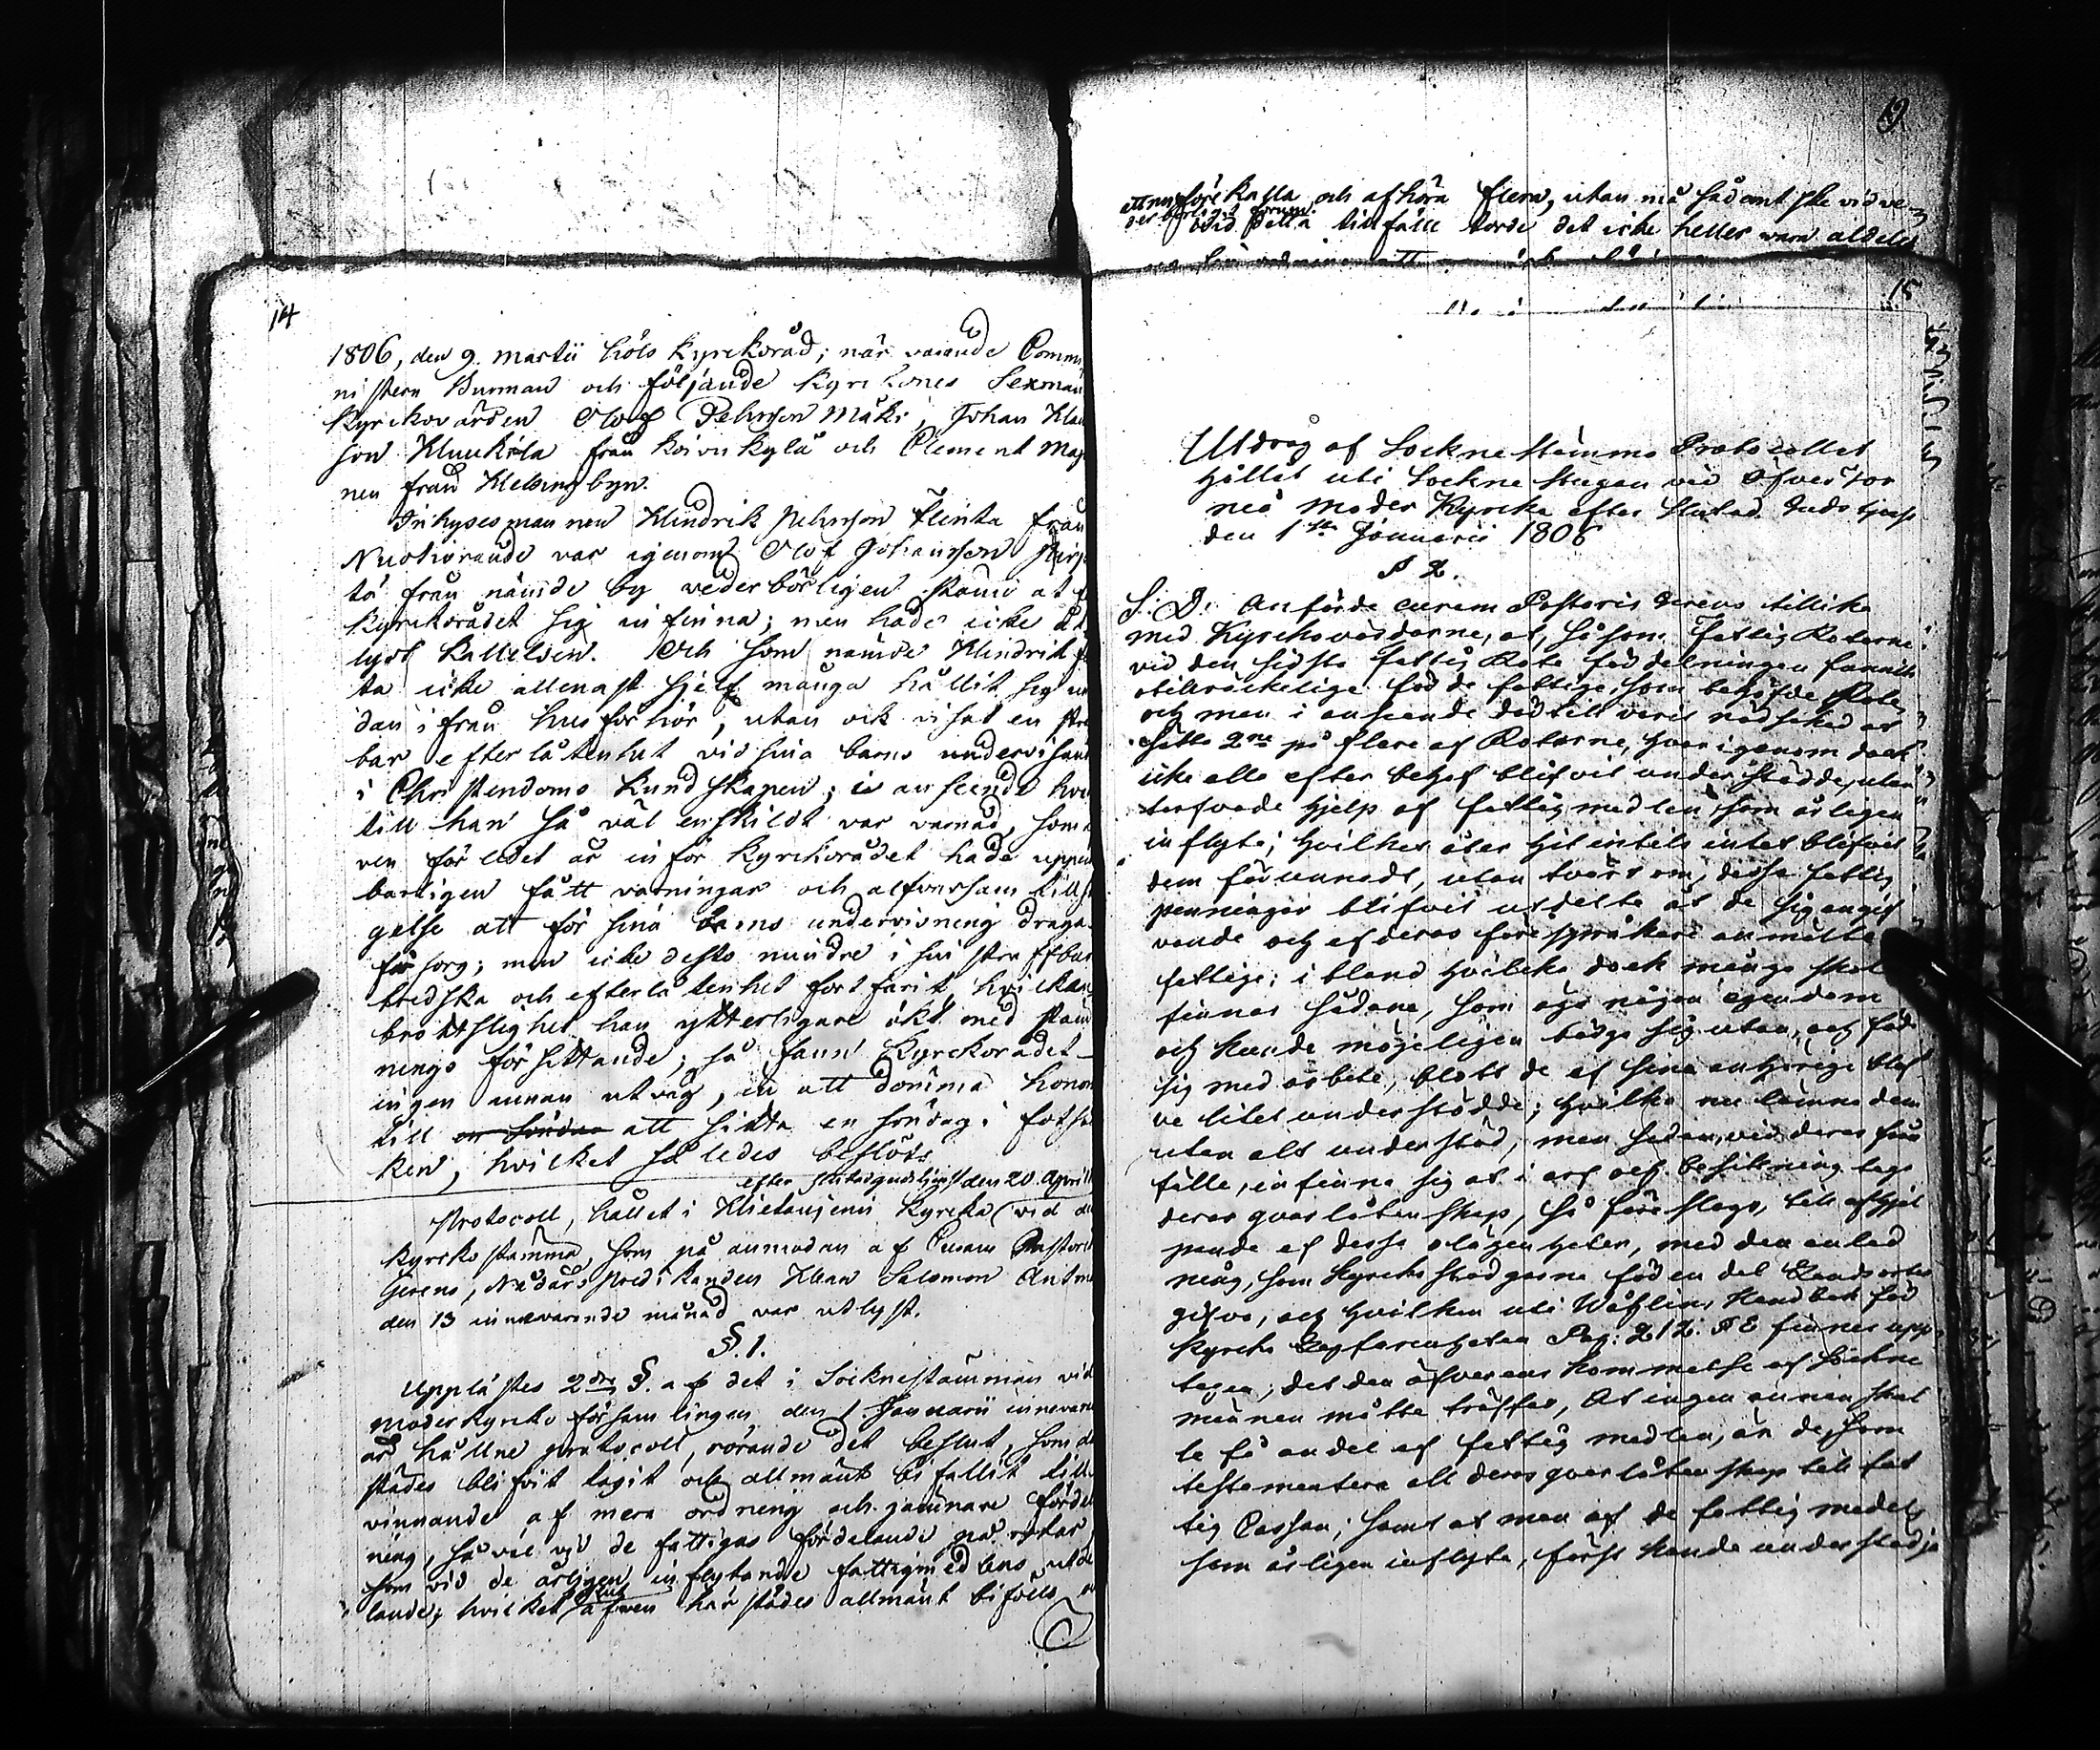 14
1806, den 9. martii höls kyrkoråd; när varande Commi
nistern Burman och följande Kyrckones Sexman
Kyrckovärden Olof Pehrsson Mäki, Johan Kla
son Kluukila från Koivukylä och Clement Mag
nen från Helsingbyn.
Inhyses mannen Hindrik Pehrsson Flinka från
Nuotioranda var igenom Olof Johansson
tö från nämde by vederbörligen stämd at
Kyrckorådet sig infinna; men hade icke
lyst kallelsen. Och som nämde Hindrik
ta icke allenast sjelf många hållit sig un
dan ifrån husförhör, utan ock visat en stra
bar efterlåtenhet vid sina barns undervisan
i Christendoms Kundskapen; i anseende hvar
till han så väl enskildt var varnad, som
ven förledet år inför Kyrckorådet hade uppen
barligen fått varningar och alfvarsam tillsä
gelse att för sina barns undervisning draga
försorg; men icke desto mindre i sin straffbar
tredska och efterlåtenhet fortfarit, hvilken
brottslighet han ytterligare ökt med stäm
nings försittande; så fann Kyrckorådet
ingen annan utväg, än att dömma honom
till en Söndag att sitta en söndag i fotstoc
ken, hvilket således beslöts.
efter slutad gudstjenst den 20. Aprill
Protocoll, hållet i Hietaniemi Kyrcka vid
Kyrcko stämma, som på anmodan af Curam Pastoralis
Gerens, Nådårs Predikanden Herr Salomon Antm
den 13 innevarande månad var utlyst.
§. 1.
Upplästes 2dra §. af det i Socknestämman vid
moderkyrcko församlingen den 1. Januarii innevara
år hållne protocoll, rörande det beslut, som där
städes blifvit tagit och allmänt bifallit till
vinnande af mera ordning och jämnare fördel
ning, så väl vid de fattigas fördelande på rotar
som vid de årligen inflytande fattigmedlens utde
lande; hvilket beslut äfven här städes allmänt bifölls
19
att nu förekalla och afhöra flera, utan må sådant ske vid ve
derbörligt forum.
vid detta tillfälle torde det icke heller vara aldeles
15
Utdrag af Sockne Stämmo Protocollet
hållit uti Sockne Stugan vid Öfver Tor
neå Moder Kyrcka efter slutad Gudstjenst
den 1sta Januarii 1806
§ 2.
S. D. Anförde Curam Pastoris Gerens tillika
med Kyrckovärdarne, at, såsom Fattig Rotarne
vid den sidsta fattig Rote fördelningen funnits
otillräckelige för de fattige, som behöfde Rote,
och man i anseende dertill varit nödsakad at
sätta 2ne på flere af Rotarne, hvarigenom dock
icke alla efter behof blifvit understödde, utan
tarfvade hjelp af fattigmedlen som årligen
inflyta; hvilket åter hit intils intet blifvit
dem förunnadt, utan tvärt om, dessa fattig
penningar blifvit utdelte åt de sig angif
vande och af deras förespråkare anmälte
fattige; i bland hvilcka dock många skola
finnas sådane, som äga någon egendom
och kunde möjeligen bärga sig utan, och föda
sig med arbete, blott de af sina anhörige blef
ve litet understödde; hvilka nu lämna dem
utan alt understöd, men sedan, vid deras från
fälle, infinna sig at i arf och besittning taga
deras qvarlåtenskap, så föreslogs, till afhjel
pande af dessa olägenheter, med den anled
ning, som Kyrcko stadgarne för en del Landsorter
gifva, och hvilken uti Wåhlins Handbok för
Kyrcko Lagfarenheten Pag: 212. § 8 finnes upp
tagen; det den öfverens kommelse af Sockne
männen måtte träffas, At ingen annan skul
le få andel af fattig medlen, än de, som
testamentera all deras qvarlåtenskap till fat
tig Cassan; samt at man af de fattig medel
som årligen inflyta, först kunde understödja